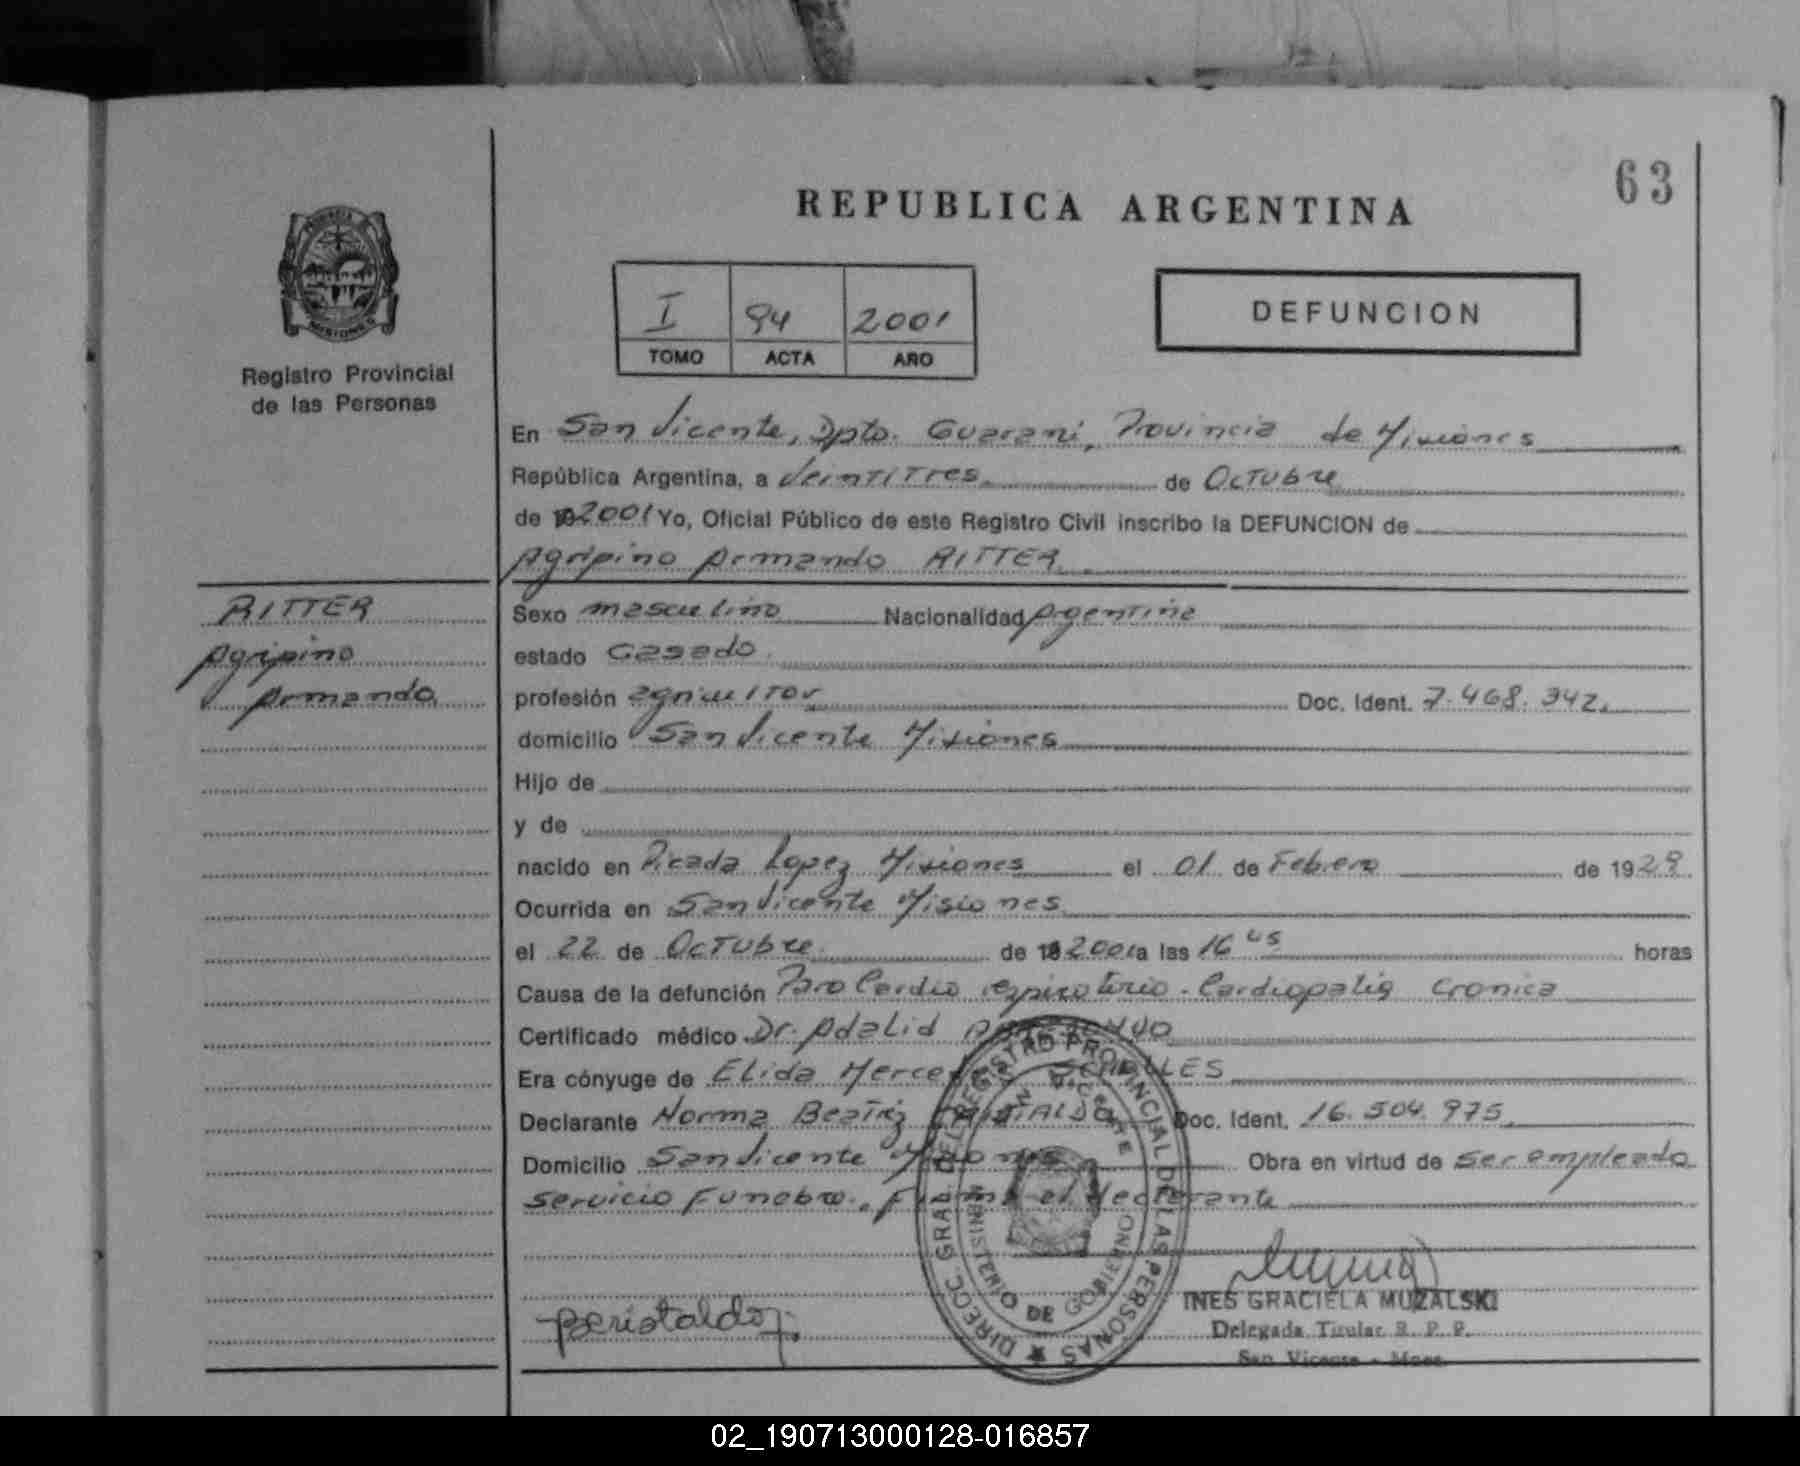 63
REPUBLICA ARGENTINA
PROVINCIA
MISIONES
Registro Provincial
de las Personas
I 94 2001
TOMO ACTA AÑO
DEFUNCION
En San Vicente, Dpto. Guarani, Provincia de Misiones
República Argentina, a Veintitres de Octubre
de 19 2001 Yo, Oficial Público de este Registro Civil inscribo la DEFUNCION de
Agripino Armando RITTER
RITTER
Agripino
Armando
Sexo masculino Nacionalidad Argentina
estado Casado.
profesión agricultor Doc. Ident. 7.468.342.
domicilio San Vicente Misiones
Hijo de
y de
nacido en Picada Lopez Misiones el 01 de Febrero de 1929.
Ocurrida en San Vicente Misiones
el 22 de Octubre de 19 2001 a las 16 45 horas
Causa de la defunción Paro Cardio respiratorio - Cardiopatia Cronica
Certificado médico Dr. Adalid
Era cónyuge de Elida Mercedes
Declarante Norma Beatriz Doc. Ident. 16.504.975
Domicilio San Vicente Misiones Obra en virtud de ser empleado
servicio Funebre. Firma el declarante
DIRECC. GRAL. DEL REGISTRO PROVINCIAL DE LAS PERSONAS
SAN VICENTE
MINISTERIO DE GOBIERNO
INES GRACIELA MUZALSKI
Delegada Titular R. P. P.
San Vicente - Mnes.
02_190713000128-016857